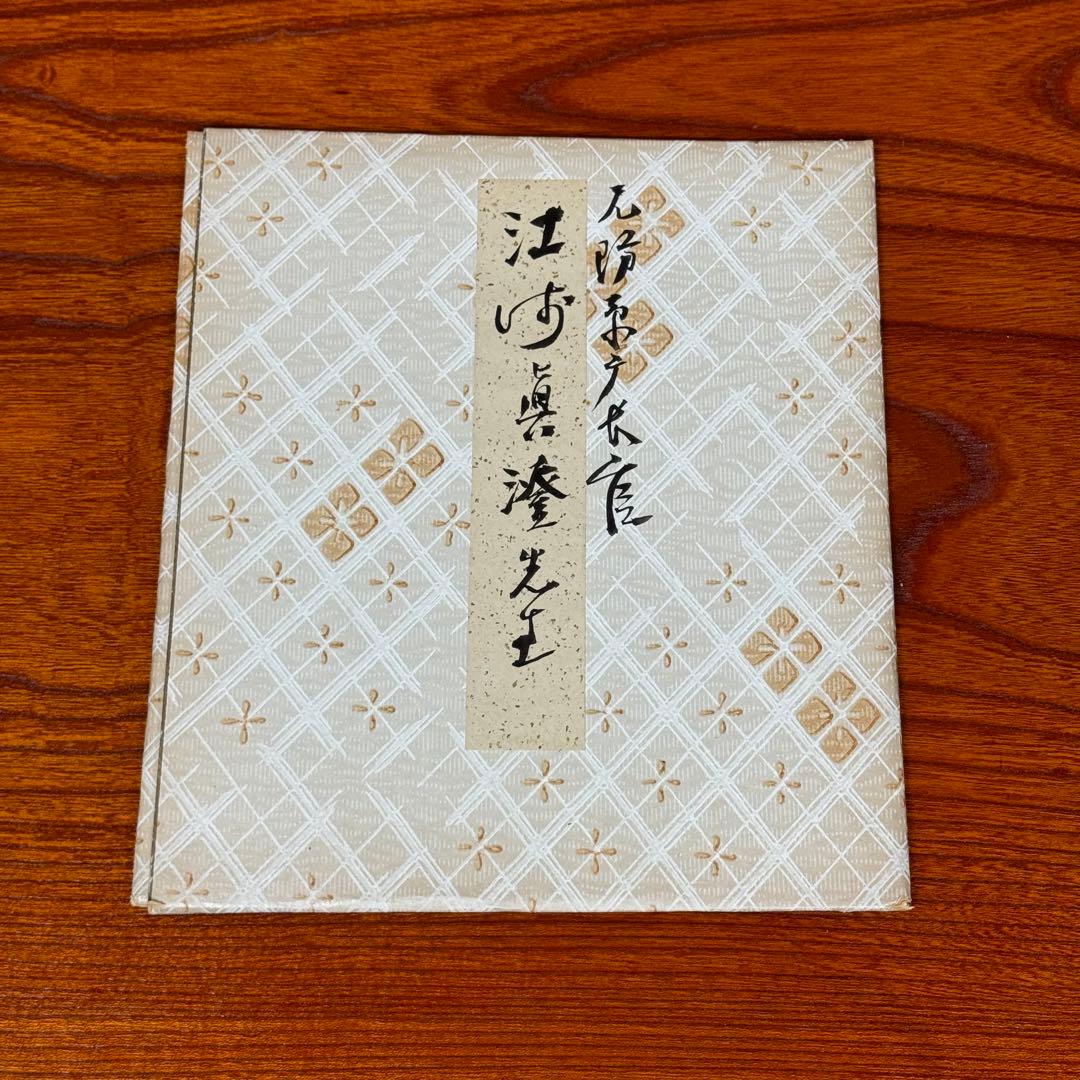 元防衛庁長官
江崎眞澄先生